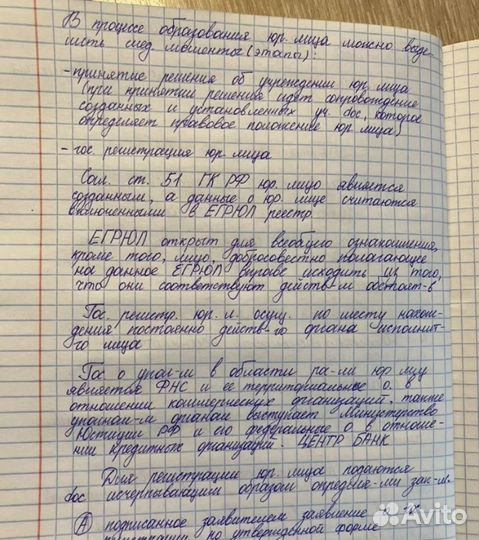 В процессе образования юр. лица можно выде
лить след. моменты (этапы):
- принятие решения об учреждении юр. лица
(при принятии решения идет сопровождение
созданных и установленных уч. док, которое
определяет правовое положение юр. лица)
- гос. регистрация юр. лица
Согл. ст. 51 ГК РФ юр. лицо является
созданным, а данные о юр. лице считаются
включенными в ЕГРЮЛ реестр.
ЕГРЮЛ открыт для всеобщего ознакомления,
кроме того, лицо, добросовестно полагающее
на данное ЕГРЮЛ вправе исходить из того,
что они соответствуют действ-м обстоят-в
Гос. регистр. юр. л. осущ. по месту нахож-
дения постоянно действ-го органа исполнит-
го лица
Гос о упол-м в области ра-ли юр лиц
является ФНС и ее территориальные о. в
отношении коммерческих организаций. также
уполном-м органом выступает Министерство
Юстиции РФ и его федеральные о в отноше-
нии кредитных организаций. ЦЕНТР БАНК
Для регистрации юр. лица подаются
док. исчерпывающим образом определя-ми зак-м.
А подписанное заявителем заявление о
по утвержденной форме
Avito